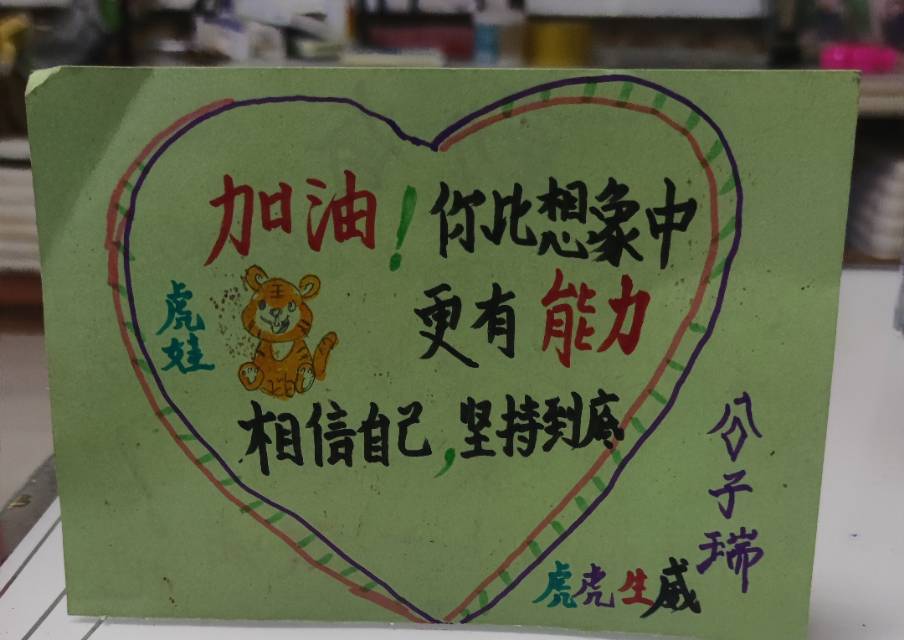 加油!你比想象中
更有能力
虎娃
相信自己,坚持到底
公子瑞
虎虎生威